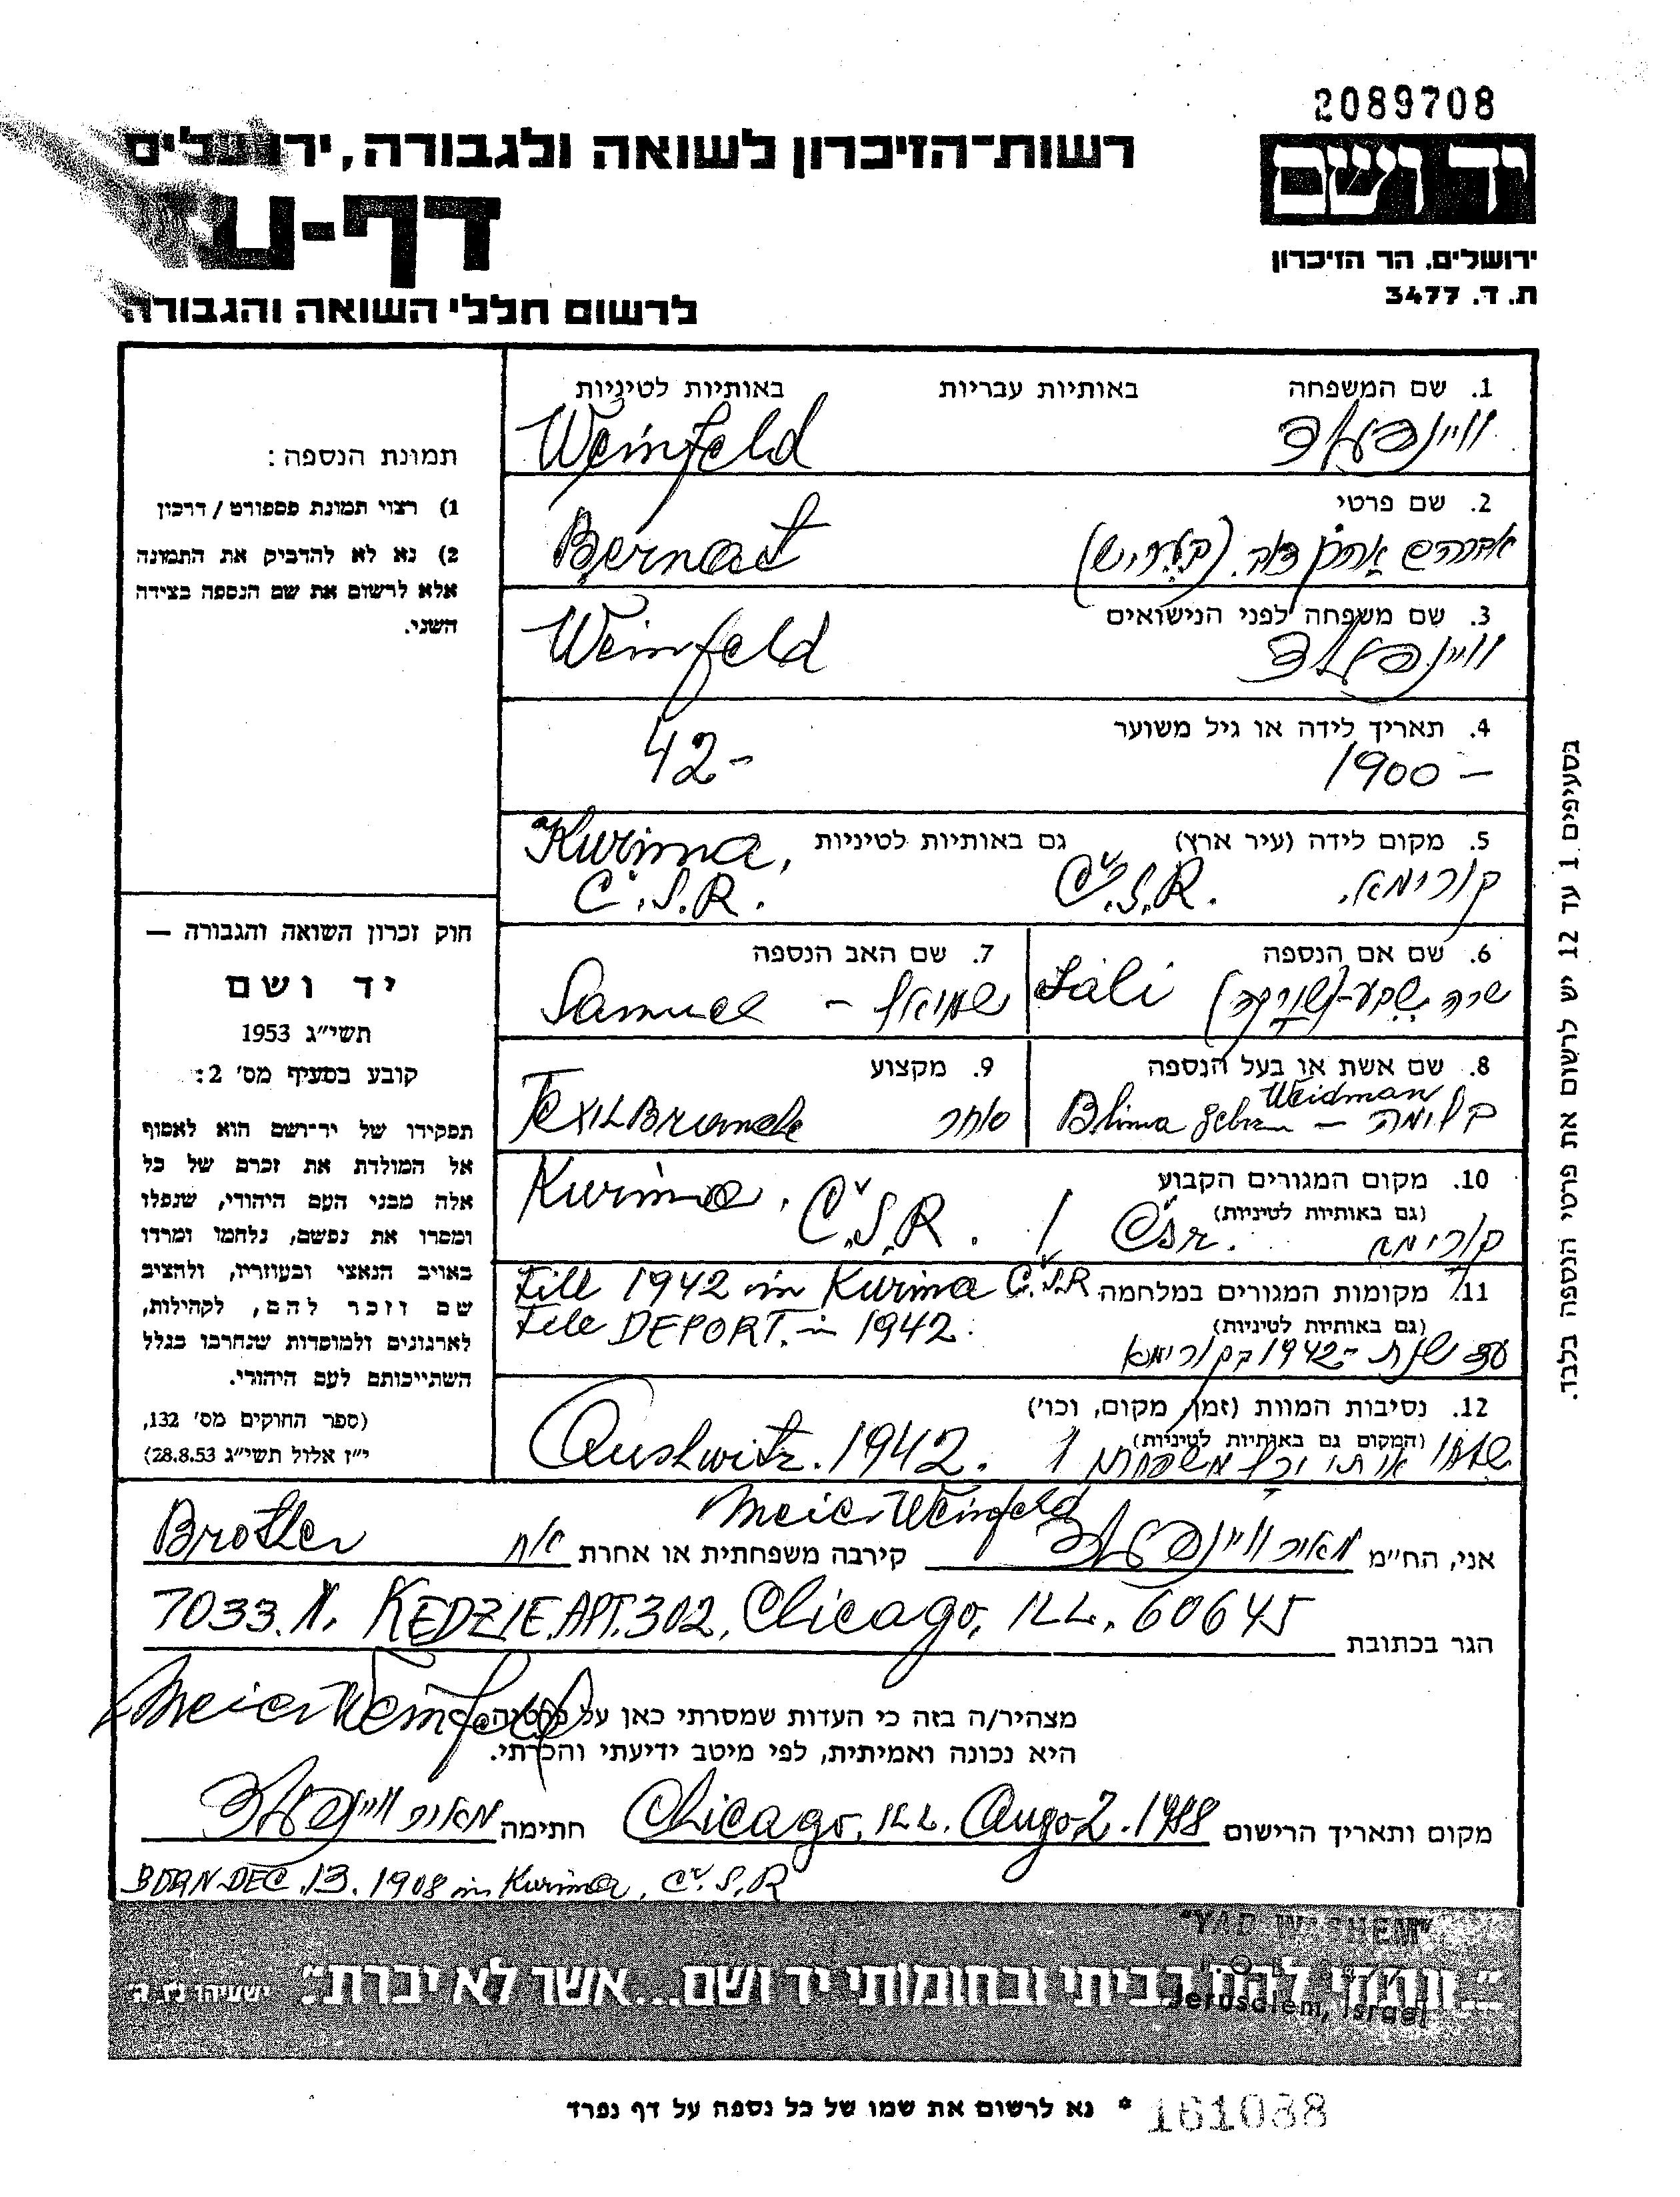 2089708
רשות-הזיכרון לשואה ולגבורה, ירושלים
יד ושם
דף-ע
ירושלים, הר הזיכרון
ת. ד. 3477
לרשום חללי השואה והגבורה
1. שם המשפחה באותיות עבריות באותיות לטיניות
וויינפעלד Weinfeld
2. שם פרטי
אברהם אהרן דוב Bernat
3. שם משפחה לפני הנישואים
וויינפעלד Weinfeld
4. תאריך לידה או גיל משוער
1900 – 42-
5. מקום לידה (עיר ארץ) גם באותיות לטיניות Kurima,
קורימא. Č.S.R. Č.S.R.
6. שם אם הנספה
שרה שבע- Sáli
7. שם האב הנספה
שמואל – Samuel
8. שם אשת או בעל הנספה
Weidman
בלומה – Blima geb
9. מקצוע
סוחר Textilbranche
10. מקום המגורים הקבוע Kurima, Č.S.R. /
(גם באותיות לטיניות)
קורימא Čsr.
11. מקומות המגורים במלחמה Till 1942 in Kurima Č.S.R
(גם באותיות לטיניות) DEPORT. in 1942.
עד שנת 1942- בקורימא
12. נסיבות המוות (זמן, מקום, וכו')
(המקום גם באותיות לטיניות) Aushwitz. 1942.
אותו וכל משפחתו
תמונת הנספה:
1) רצוי תמונת פספורט / דרכון
2) נא לא להדביק את התמונה
אלא לרשום את שם הנספה בצידה
השני.
חוק זכרון השואה והגבורה —
יד ושם
תשי"ג 1953
קובע בסעיף מס' 2:
תפקידו של יד-ושם הוא לאסוף
אל המולדת את זכרם של כל
אלה מבני העם היהודי, שנפלו
ומסרו את נפשם, נלחמו ומרדו
באויב הנאצי ובעוזריו, ולהציב
שם וזכר להם, לקהילות,
לארגונים ולמוסדות שנחרבו בגלל
השתייכותם לעם היהודי.
(ספר החוקים מס' 132,
י"ז אלול תשי"ג 28.8.53)
בסעיפים 1 עד 12 יש לרשום את פרטי הנספה בלבד.
Meier Weinfeld
אני, הח"מ מאיר וויינפעלד קירבה משפחתית או אחרת אח Brother
הגר בכתובת 7033. N. KEDZIE. APT. 302, Chicago, ILL. 60645
Meier Weinfeld
מצהיר/ה בזה כי העדות שמסרתי כאן על פרטיה
היא נכונה ואמיתית, לפי מיטב ידיעתי והכרתי.
מקום ותאריך הרישום Chicago, ILL. Aug-2. 1988 חתימה מאיר וויינפעלד
BORN DEC. 13. 1908 in Kurima, Č.S.R
"YAD WASHEM"
"...ונתתי להם בביתי ובחומותי יד ושם...אשר לא יכרת". ישעיהו נו, ה'
Jerusalem, Israel
* נא לרשום את שמו של כל נספה על דף נפרד
161038